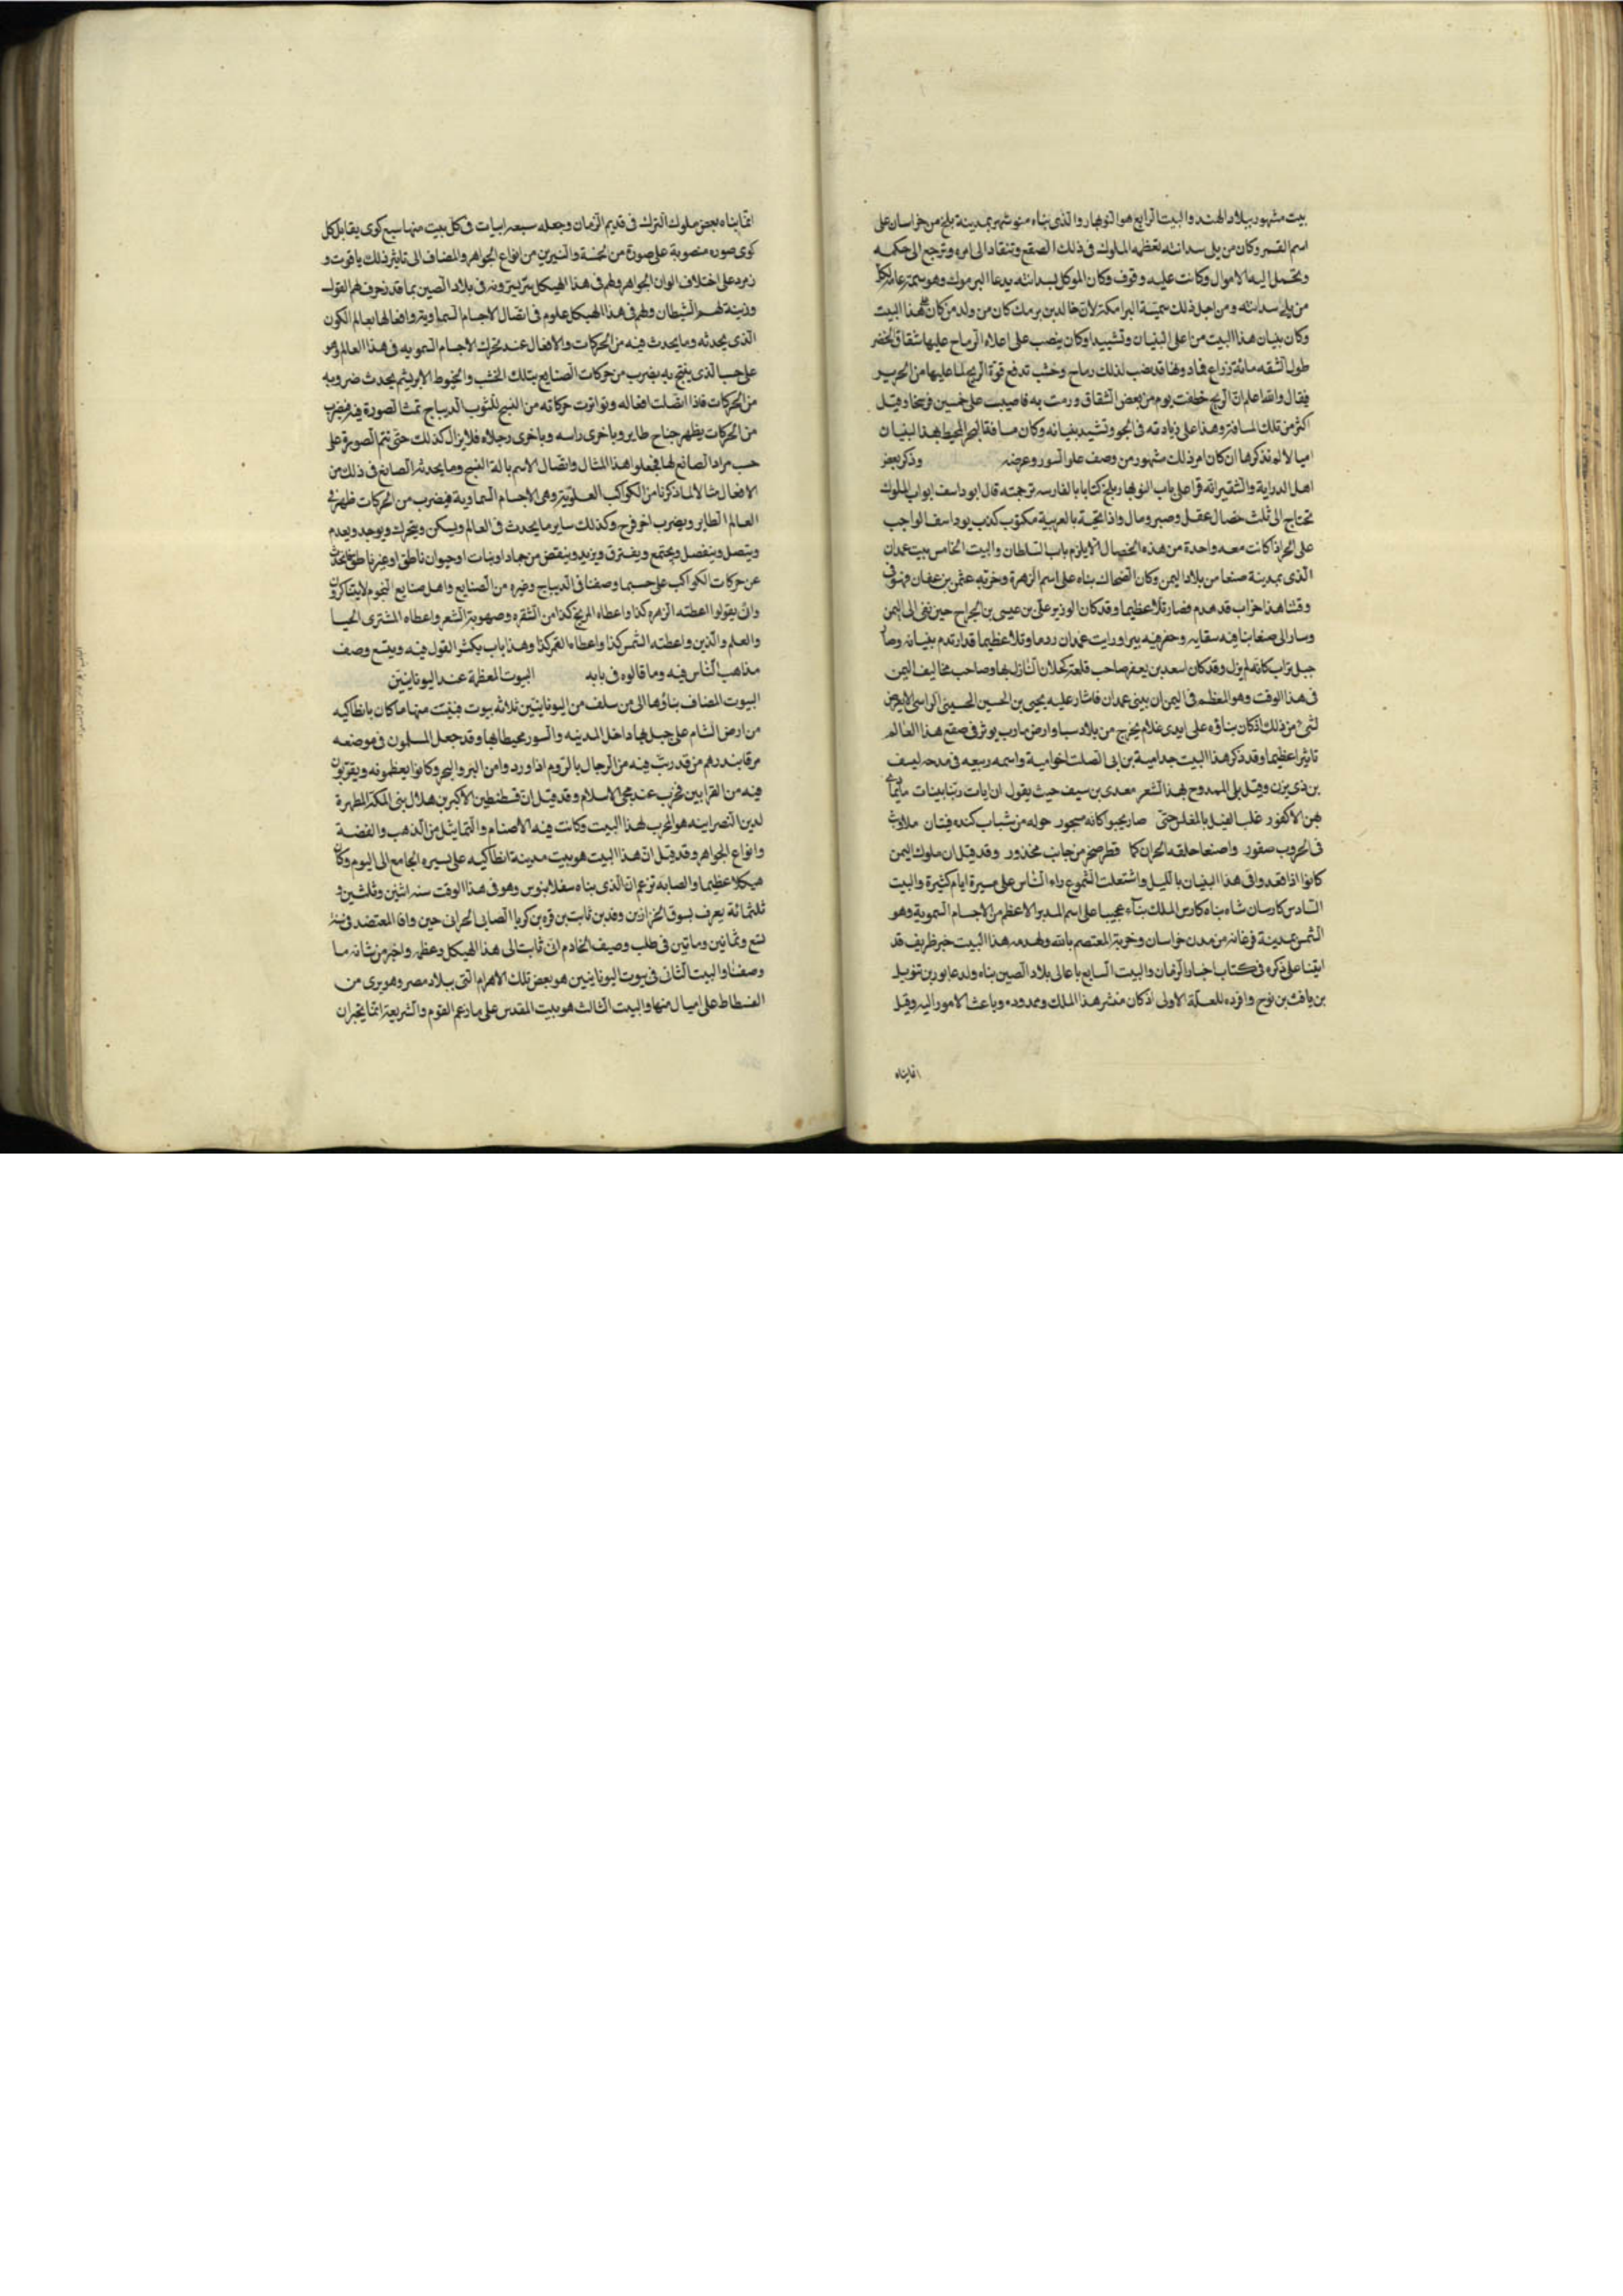 بيت مشهور ببلاد الهند والبيت الرابع هو النوبهار والذى بناه منوشهر بمدينة بلخ من خراسان على
اسم القمر وكان من يلى سدانته تعظمه الملوك فى ذلك الصقع وتنقاد الى امره وترجع الى حكمه
وتحمل اليه الاموال وكانت عليه وقوف وكان الموكل بسدانته يدعا البرموك وهو سمة عامة لكل
من يلى سدانته ومن اجل ذلك سميت البرامكة لان خالد بن برمك كان من ولد من كان على هذا البيت
وكان بنيان هذا البيت من اعلى البنيان وتشييدا وكان ينصب على اعلاه الرماح عليها شقاق الخضر
طول الشقه مائة ذراع فما دونها قد نصب لذلك رماح وخشب تدفع قوة الريح لما عليها من الحرير
فيقال والله اعلم ان الريح خطفت يوم من بعض الشقاق ورمت به فاصيب على خمسين فرسخا وقيل
اكثر من تلك المسافة وهذا على زيادته فى الجو وتشييد بنيانه وكان مسافة البحر المحيط بهذا البنيان
اميالا لم نذكرها ان كان امر ذلك مشهور من وصف علو السور وعرضه وذكر بعض
اهل الدراية والتنقير انه قرا على باب النوبهار ببلخ كتابا بالفارسيه ترجمته قال ابوداسف ابواب الملوك
تحتاج الى ثلث خصال عقل وصبر ومال واذا تحته بالعربية مكتوب كذب يوداسف الواجب
على الحر اذا كانت معه واحدة من هذه الخصال الا يلزم باب السلطان والبيت الخامس بيت غمدان
الذى بمدينة صنعا من بلاد اليمن وكان الضحاك بناه على اسم الزهرة وخربه عثمن بن عفان فهو فى
وقتنا هذا خراب قد هدم فصار تلا عظيما وقد كان الوزير على بن عيسى بن الجراح حين نفى الى اليمن
وسار الى صنعا بنا فيه سقايه وحفر فيه بيرا ورايت غمدان ردما وتلا عظيما قد ارتدم بنيانه وصار
جبل تراب كانه لم يزل وقد كان اسعد بن يعفر صاحب قلعة كحلان النازل بها وصاحب مخاليف اليمن
فى هذا الوقت وهو المعظم فى اليمن ان يبنى غمدان فاشار عليه يحيى بن الحسين الحسينى الراسى الا يعرض
لشئ من ذلك اذ كان بناؤه على ايدى غلام يخرج من بلاد سبا وارض مارب يوثر فى صقع هذا العالم
تاثيرا عظيما وقد ذكر هذا البيت جد امية بن ابى الصلت اخو امية واسمه ربيعه فى مدحه لسيف
بن ذى يزن وقيل بل الممدوح بهذا الشعر معدى بن سيف حيث يقول ان ايات ربنا بينات ما يمارى
فيهن الا كفور غلب الفيل بالمغلس حتى صار يحبوا كانه مسجور حوله من شباب كنده فتيان ملاويث
فى الحروب صقور واصنعا حلقه الحران كما قطر صخر من جانب مخذور وقد قيل ان ملوك اليمن
كانوا اذا قعدوا فى هذا البنيان بالليل واشتعلت الشموع راه الناس على مسيرة ايام كثيرة والبيت
السادس كارسان شاه بناه كاوس الملك بناء عجيبا على اسم المدبر الاعظم من الاجسام السموية وهو
الشمس بمدينة فرغانه من مدن خراسان وخربه المعتصم بالله ولهدمه هذا البيت خبر ظريف قد
اتينا على ذكره فى كتاب اخبار الزمان والبيت السابع باعالى بلاد الصين بناه ولد عابور بن توبيل
بن يافث بن نوح وافرده للعلة الاولى اذ كان منشر هذا الملك وممدوده وباعث الامور اليه وقيل
انما بناه
انما بناه بعض ملوك الترك فى قديم الزمان وجعله سبعه ابيات فى كل بيت منها سبع كوى يقابل كل
كوى صوره منصوبة على صورة من الخمسة والنيرين من انواع الجواهر والمضاف الى تاثير ذلك ياقوت و
زمرد على اختلاف الوان الجواهر ولهم فى هذا الهيكل سر يسرونه فى بلاد الصين بما قد زخرف لهم القول
وزينة لهم الشيطان ولهم فى هذا الهيكل علوم فى اتصال الاجسام السماوية وافعالها بعالم الكون
الذى يحدثه وما يحدث فيه من الحركات والافعال عند تحرك الاجسام السمويه فى هذا العالم وهو
على حسب الذى ينسج به بضرب من حركات الصنايع بتلك الخشب والخيوط الابريشم يحدث ضروبه
من الحركات فاذا اتصلت افعاله وتواترت حركاته من النسج للثوب الديباج تمت الصورة فيه فبضرب
من الحركات يظهر جناح طاير وباخرى راسه وباخرى رجلاه فلا يزال كذلك حتى تتم الصورة على
حسب مراد الصانع لها فجعلوا هذا المثال واتصال الابريسم بالة النسج وما يحدثه الصانع فى ذلك من
الافعال مثالا لما ذكرنا من الكواكب العلوية وهى الاجسام السماوية فبضرب من الحركات ظهر فى
العالم الطاير وبضرب اخر فرخ وكذلك ساير ما يحدث فى العالم ويسكن ويتحرك ويوجد ويعدم
ويتصل وينفصل ويجتمع ويفترق ويزيد وينقص من جماد او نبات او حيوان ناطق او غير ناطق يحدث
عن حركات الكواكب على حسب ما وصفنا فى الديباج وغيره من الصنايع واهل صنايع النجوم لا يتناكرون
وان يقولوا اعطته الزهره كذا واعطاه المريخ كذا من الشقره وصهوبة الشعر واعطاه المشترى الحيا
والعلم والدين واعطته الشمس كذا واعطاه القمر كذا وهذا باب يكثر القول فيه ويتسع وصف
مذاهب الناس فيه وما قالوه فى بابه البيوت المعظمة عند اليونانيين
البيوت المضاف بناؤها الى من سلف من اليونانيين ثلاثه بيوت فبيت منها ما كان بانطاكيه
من ارض الشام على جبل بها داخل المدينه والسور محيط بها وقد جعل المسلمون فى موضعه
مرقبا ينذرهم من قد رتب فيه من الرجال بالروم اذا وردوا من البر والبحر وكانوا يعظمونه ويقربون
فيه من القرابين فخرب عند مجى الاسلام وقد قيل ان قسطنطين الاكبر بن هلانى الملكة المظهرة
لدين النصرانيه هو المخرب لهذا البيت وكانت فيه الاصنام والتماثيل من الذهب والفضة
وانواع الجواهر وقد قيل ان هذا البيت هو بيت مدينة انطاكيه على يسره الجامع الى اليوم وكان
هيكلا عظيما والصابه تزعم ان الذى بناه سقلابنوس وهو فى هذا الوقت سنه اثنين وثلثين و
ثلثمائة يعرف بسوق الخرازين وقد بن ثابت بن قره بن كريا الصابى الحرانى حين وافا المعتضد فى سنة
تسع وثمانين وماتين فى طلب وصيف الخادم ان ثابت الى هذا الهيكل وعظمه واخبر من شانه ما
وصفنا والبيت الثانى فى بيوت اليونانيين هو بعض تلك الاهرام التى ببلاد مصر وهو يرى من
الفسطاط على اميال منها والبيت الثالث هو بيت المقدس على ما زعم القوم والشريعة انما يخبران